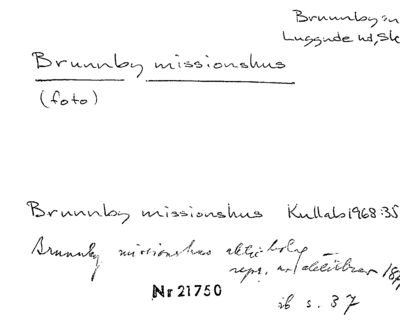 Brunnby sn
Luggude hd, Sk
Brunnby missionshus
(foto)
Brunnby missionshus Kullabo 1968:35
Brunnby missionshus aktie-bolag
repr. av aktiebrev 18
Nr 21750
ib s. 37